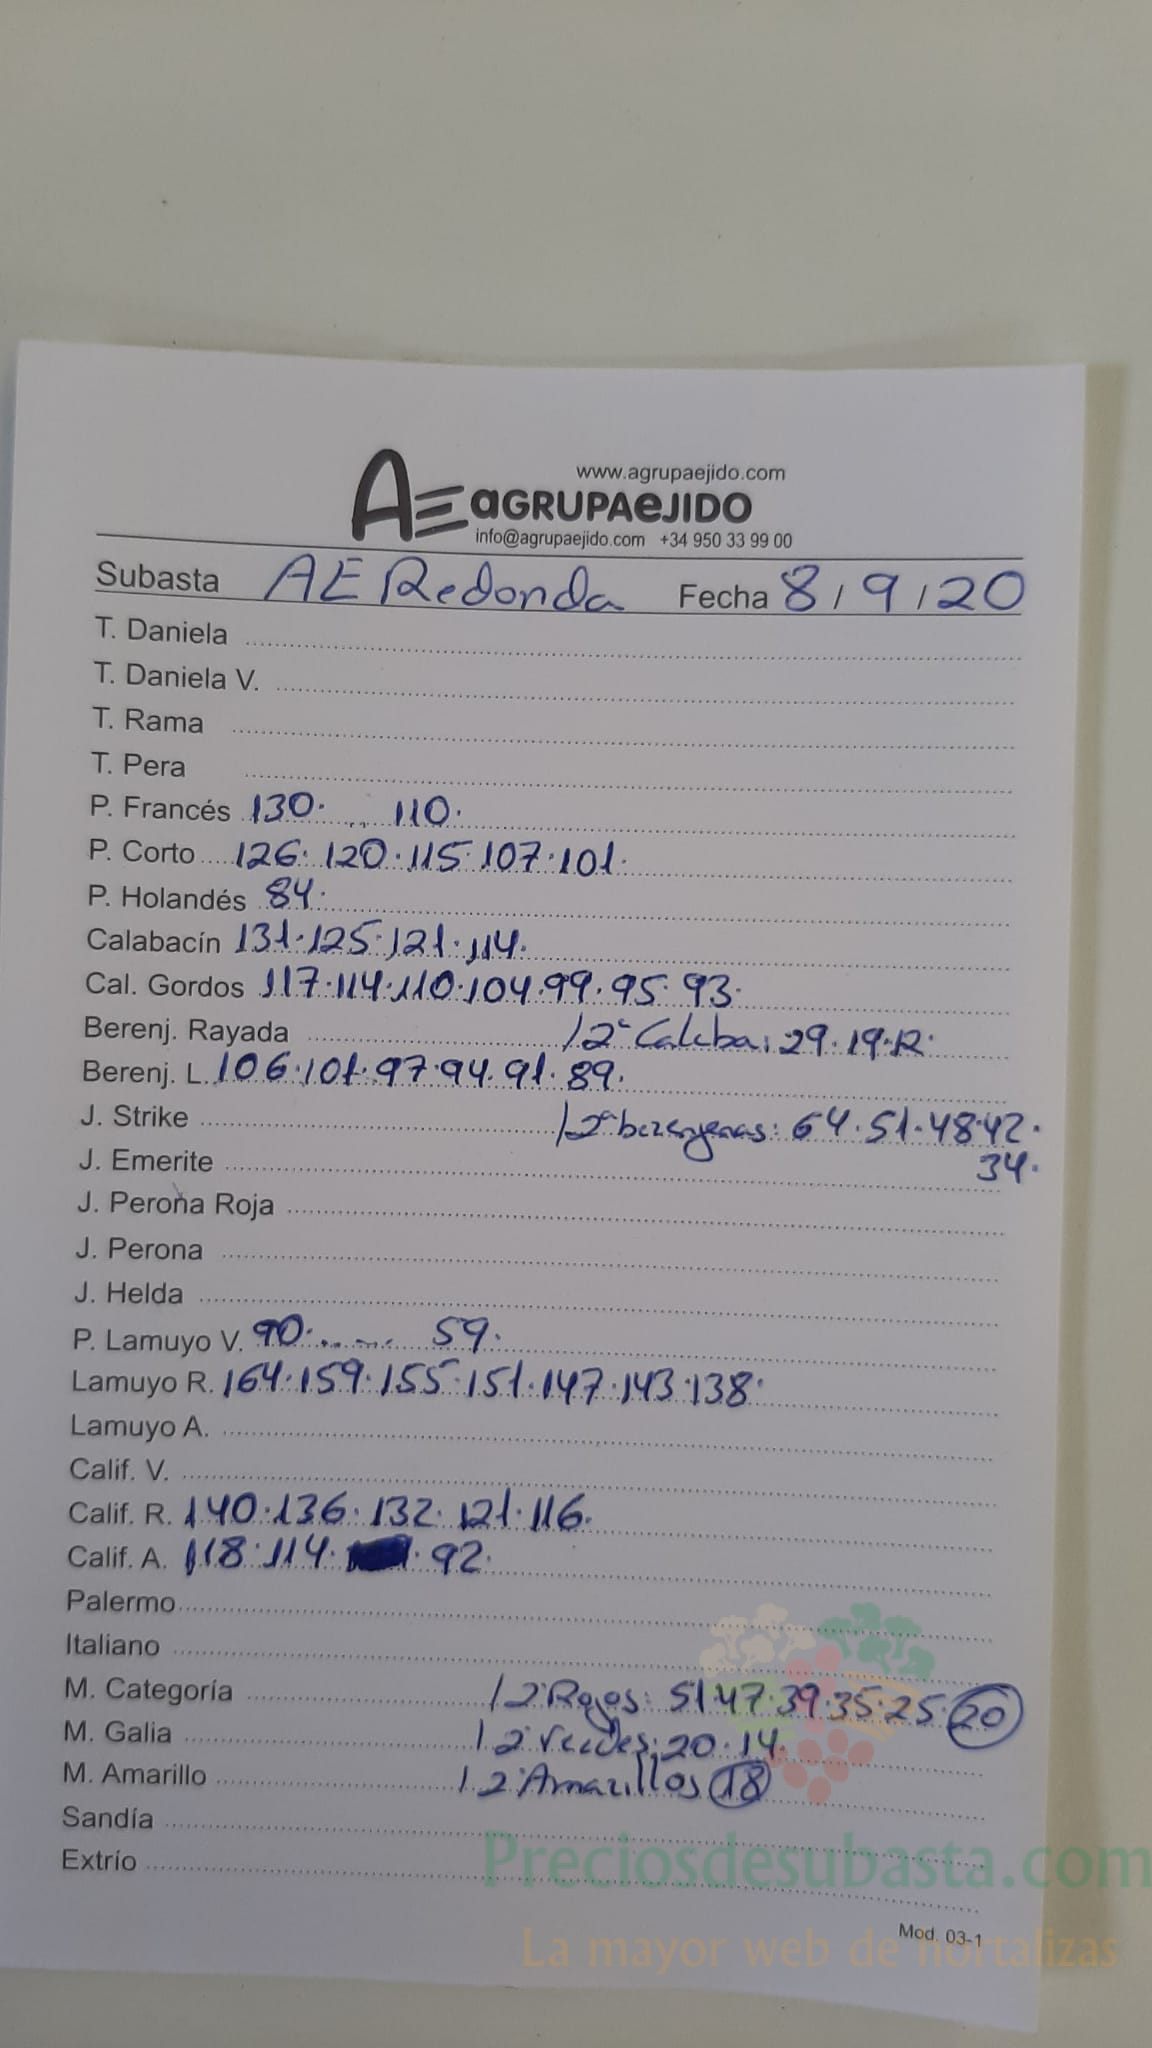 www.agrupaejido.com
AE aGRUPAeJIDO
info@agrupaejido.com +34 950 33 99 00
Subasta AE Redonda Fecha 8/9/20
T. Daniela
T. Daniela V.
T. Rama
T. Pera
P. Francés 130. 110.
P. Corto 126. 120. 115. 107. 101.
P. Holandés 84.
Calabacín 131. 125. 121. 114.
Cal. Gordos 117. 114. 110. 104. 99. 95. 93.
Berenj. Rayada / 2ª Calaba: 29. 19. 12.
Berenj. L. 106. 101. 97. 94. 91. 89.
J. Strike / 2ª berenjenas: 64. 51. 48. 42.
34.
J. Emerite
J. Perona Roja
J. Perona
J. Helda
P. Lamuyo V. 90. 59.
Lamuyo R. 164. 159. 155. 151. 147. 143. 138.
Lamuyo A.
Calif. V.
Calif. R. 140. 136. 132. 121. 116.
Calif. A. 118. 114. 92.
Palermo
Italiano
M. Categoría / 2ª Rojos: 51. 47. 39. 35. 25. 20
M. Galia / 2ª Verdes: 20. 14.
M. Amarillo / 2ª Amarillos 18
Sandía
Extrío
Preciosdesubasta.com
Mod. 03-1
La mayor web de hortalizas